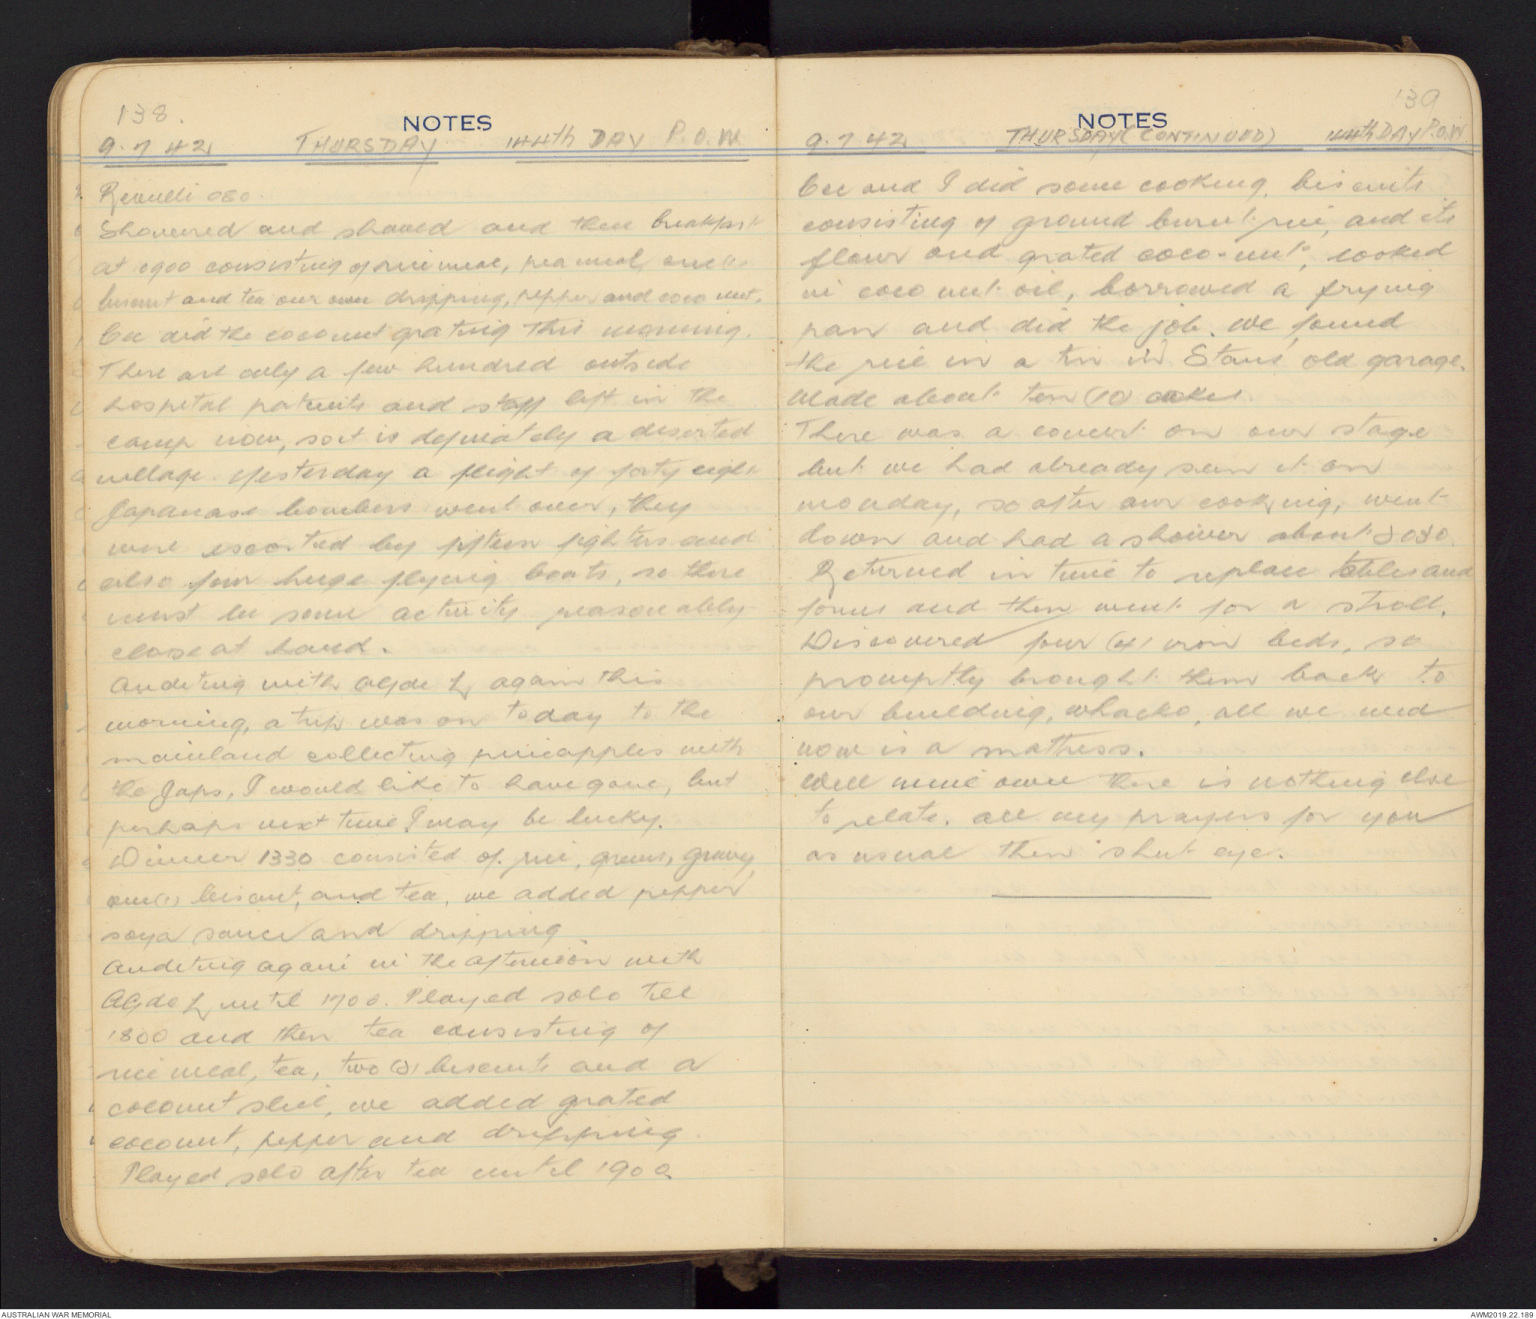 138.
NOTES
9.7.42 THURSDAY 144th DAY P.O.W.
Reveille 080
Showered and shaved and then breakfast
at 0900 consisting of rice meal, pea meal, one (1)
biscuit and tea our own dripping, pepper and coco nut.
Cec did the coconut grating this morning.
There are only a few hundred outside
hospital patients and staff left in the
camp now, so it is definately a deserted
village. Yesterday a flight of forty eight
Japanase bombers went over, they
were escorted by fifteen fighters and
also four huge flying boats, so there
must be some activity reasonably
close at hand.
Auditing with Clyde L again this
morning, a trip was on today to the
mainland collecting pineapples with
the Japs, I would like to have gone, but
perhaps next time I may be lucky.
Dinner 1330 consisted of rice, greens, gravy,
one (1) biscuit, and tea, we added pepper
soya sauce and dripping
Auditing again in the afternoon with
Clyde L until 1700. Played solo till
1800 and then tea consisting of
rice meal, tea, two (2) biscuits and a
coconut slice, we added grated
coconut, pepper and dripping.
Played solo after tea until 1900
139
NOTES
9.7.42 THURSDAY (CONTINUED) 144th DAY P.O.W.
Cec and I did some cooking, biscuits
consisting of ground burnt rice, and its
flour and grated coco-nut, cooked
in coco nut oil, borrowed a frying
pan and did the job. We found
the rice in a tin in Stans old garage.
Made about ten (10) cakes.
There was a concert on our stage
but we had already seen it on
monday, so after our cooking, went
down and had a shower about 2030.
Returned in time to replace tables and
forms and then went for a stroll.
Discovered four (4) iron beds, so
promptly brought them back to
our building, whacko, all we need
now is a mattress.
Well mine own there is nothing else
to relate. All my prayers for you
as usual then shut eye.
AUSTRALIAN WAR MEMORIAL
AWM2019.22.189